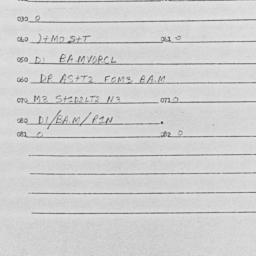 030 0
040 )+MO S+T 041 0
050 DI BA.MVORCL
060 DR AS+T2 FOM3 BA.M
070 M3 S+2D2LT2 N3 071 0
080 DI/BA.M/RIN
081 0 082 0